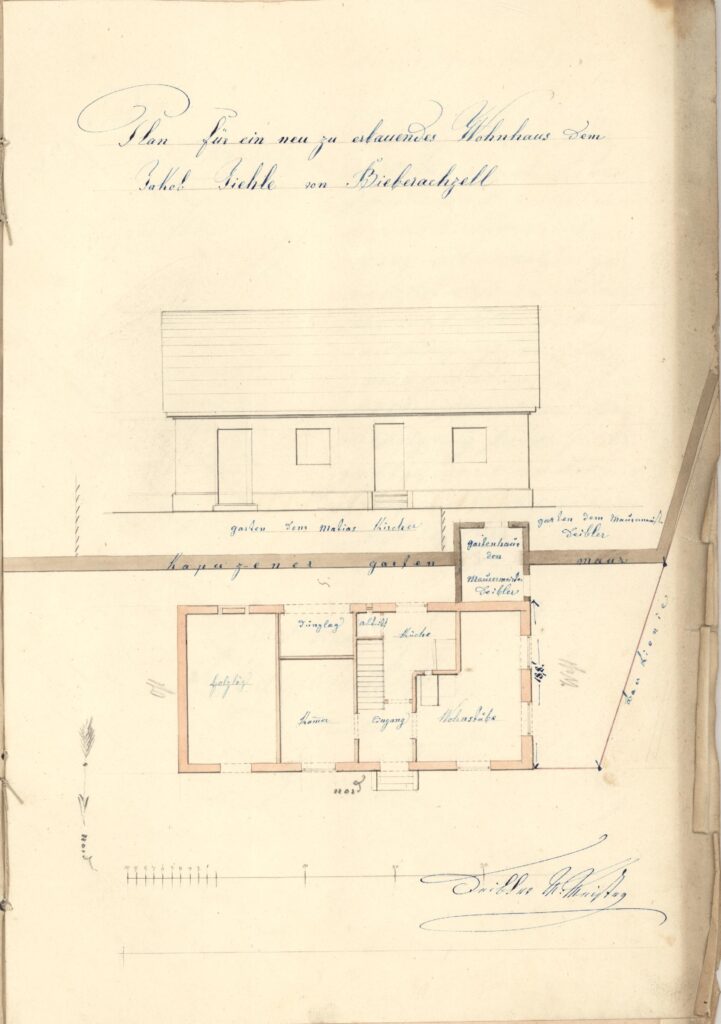 Plan für ein neu zu erbauendes Wohnhaus dem
Jakob Ziehle von Bieberachzell
garten dem Matias Kircher
garten dem Maurermeist
Deibler
Kapuzener garten maur
gartenhaus
den
Maurermeister
Deibler
S.
Dünglag
abtritt
Küche
Holzlag
Kammer
Eingang
Wohnstube
18,8'
Bau Linie
West
Nord
Nord
Deibler M. Meister